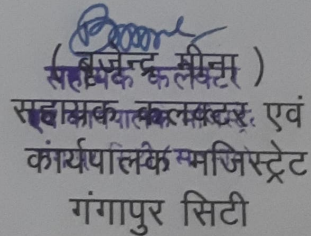 ( बृजेन्द्र मीना )
सहायक कलेक्टर
सहायक कलक्टर एवं
कार्यपालक मजिस्ट्रेट
गंगापुर सिटी